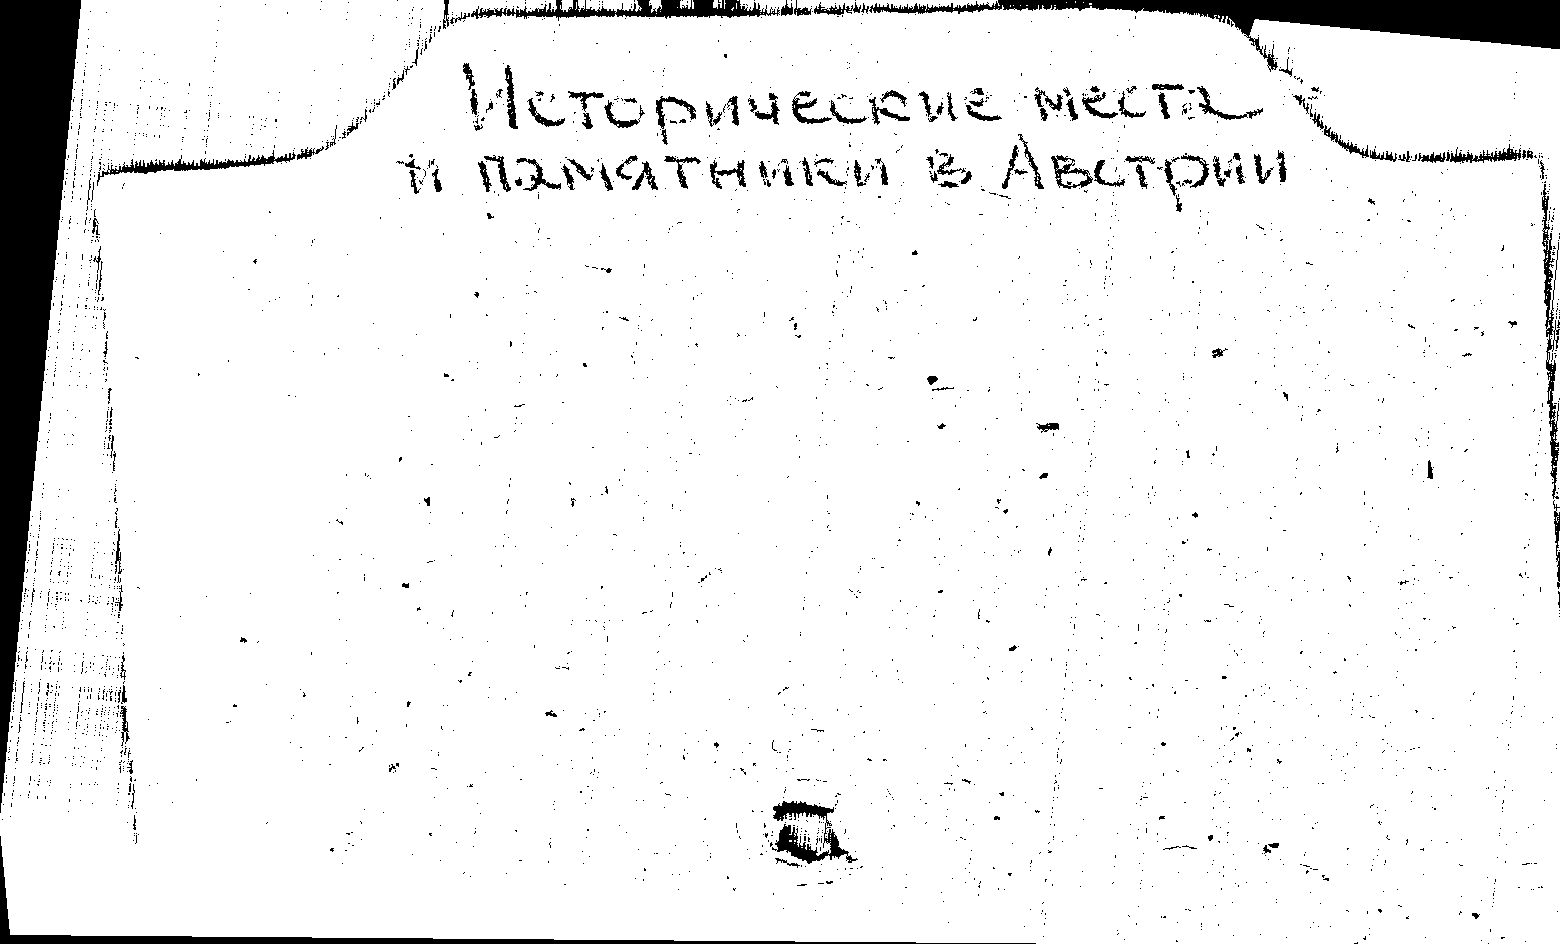 Исторические места
и памятники в Австрии